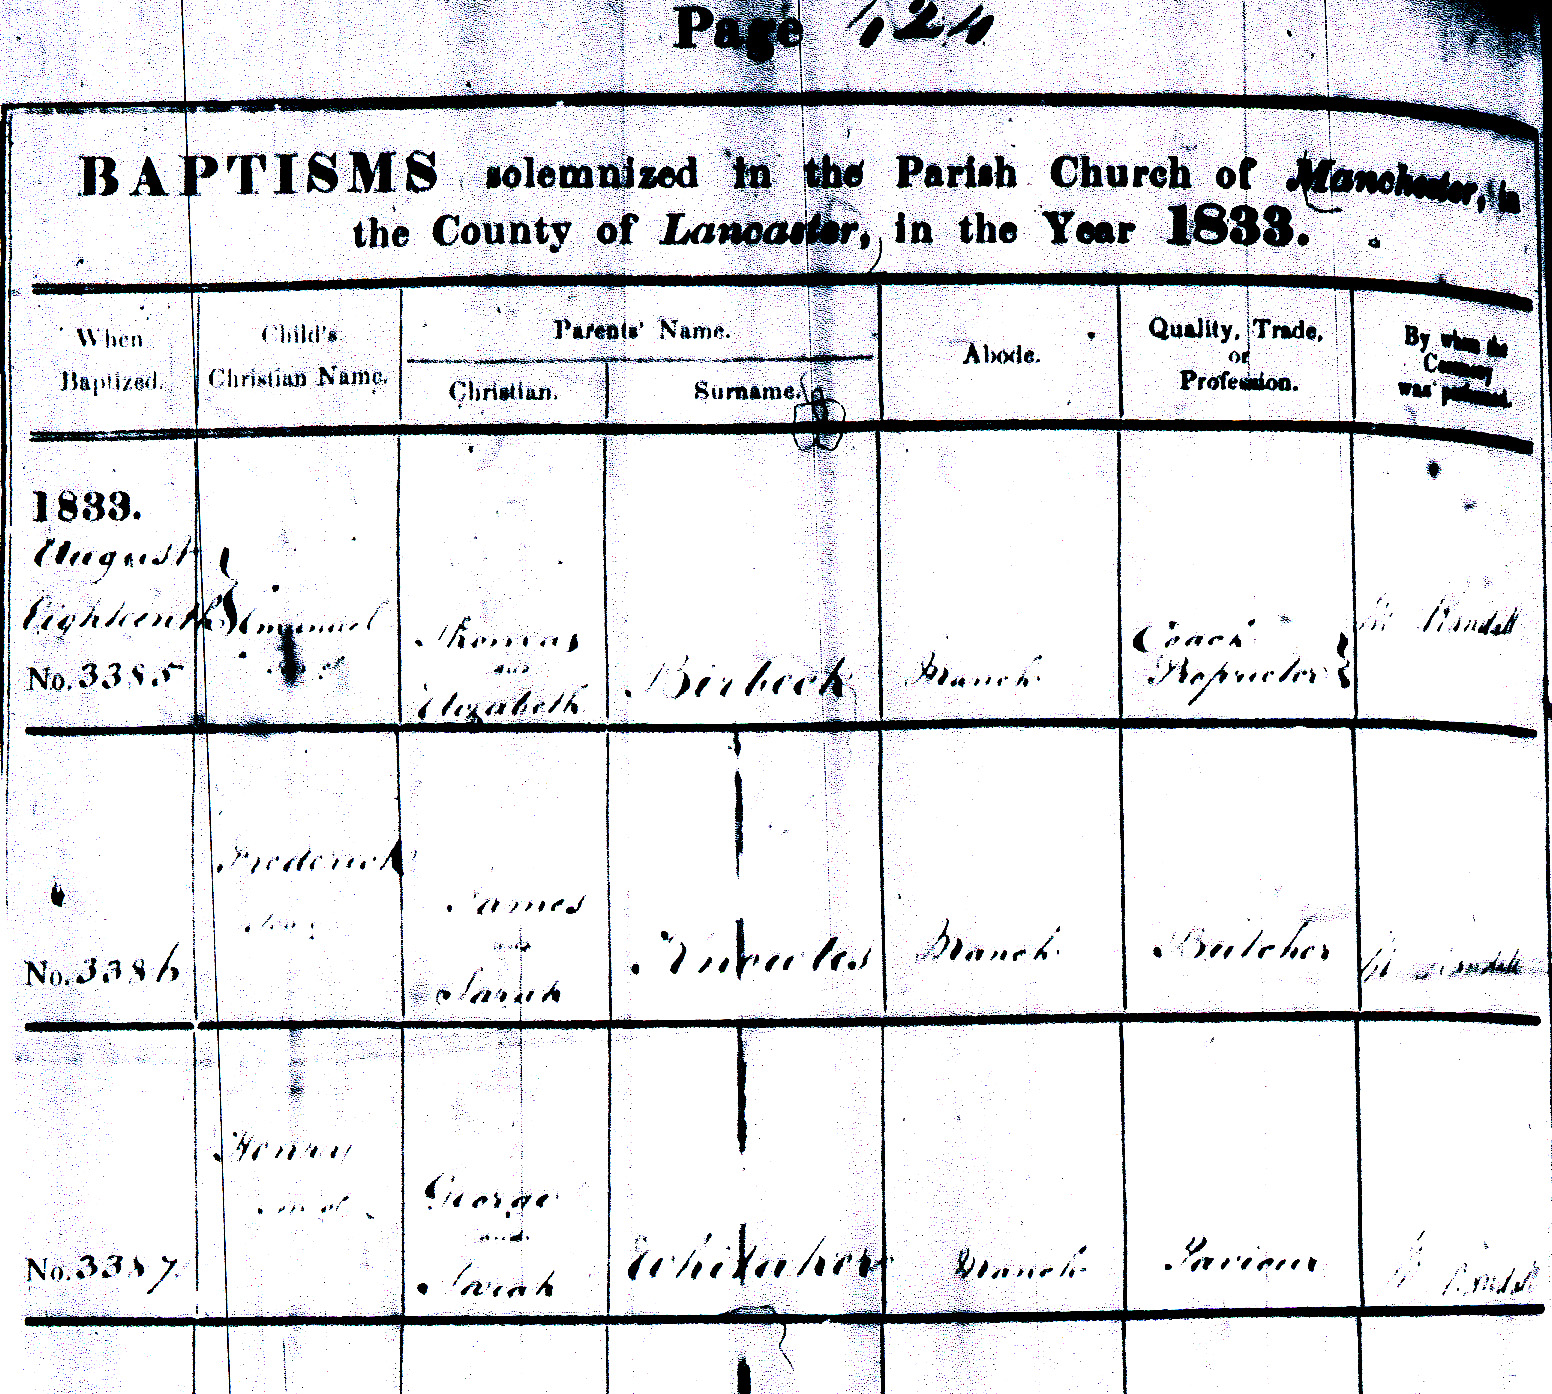 Page 424
BAPTISMS solemnized in the Parish Church of Manchester, in
the County of Lancaster, in the Year 1833.
When Baptized.
Child's Christian Name.
Parents' Name.
Christian.
Surname.
Abode.
Quality, Trade, or Profession.
By whom the Ceremony was performed.
1833.
August
Eighteenth
No. 3385
Emanuel
son of
Thomas
and
Elizabeth
Birbeck
Manch.
Coach
Proprietor
No. 3386
Frederick
James
and
Sarah
Knowles
Manch.
Butcher
No. 3387
Henry
son of
George
and
Sarah
Whitaker
Manch.